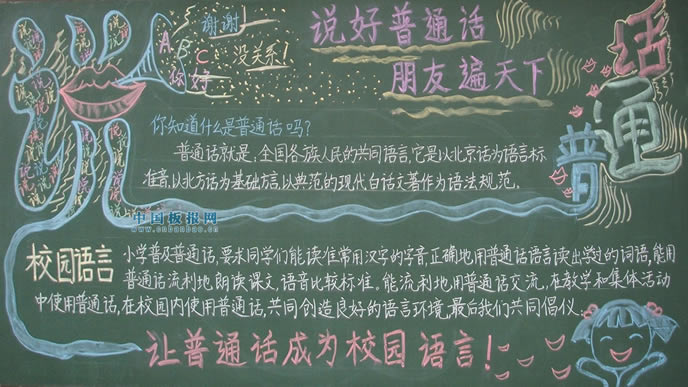 说
谢谢！
没关系！
A B C
你好
说好普通话
朋友遍天下
话
通
普
你知道什么是普通话吗？
普通话就是,全国各族人民的共同语言,它是以北京话为语言标
准音,以北方话为基础方言,以典范的现代白话文著作为语法规范。
中国板报网
www.cnbanbao.cn
校园语言
小学普及普通话,要求同学们能读准常用汉字的字音,正确地用普通话语言读出学过的词语,能用
普通话流利地朗读课文,语音比较标准。能流利地用普通话交流,在教学和集体活动
中使用普通话,在校园内使用普通话,共同创造良好的语言环境,最后我们共同倡仪：
让普通话成为校园语言！